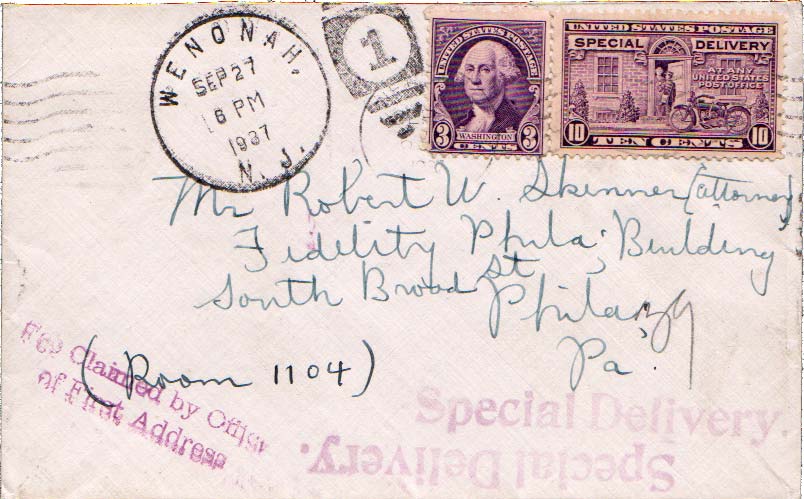 WENONAH,
SEP 27
6 PM
1937
N. J.
1
UNITED STATES POSTAGE
3 WASHINGTON 3
CENTS
UNITED STATES POSTAGE
SPECIAL DELIVERY
AT ANY
UNITED STATES
POST OFFICE
10 TEN CENTS 10
Mr Robert W. Skinner (attorney)
Fidelity Phila; Building
South Broad St
Phila;
Pa.
(Room 1104)
Fee Claimed by Office
of First Address
Special Delivery.
Special Delivery.